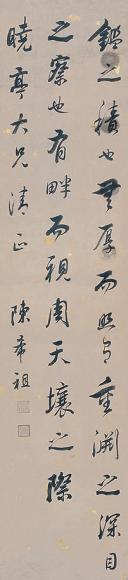 鑑之積也無厚而照有重淵之深目
之察也有畔而視周天壤之際
曉亭大兄清正 陳希祖